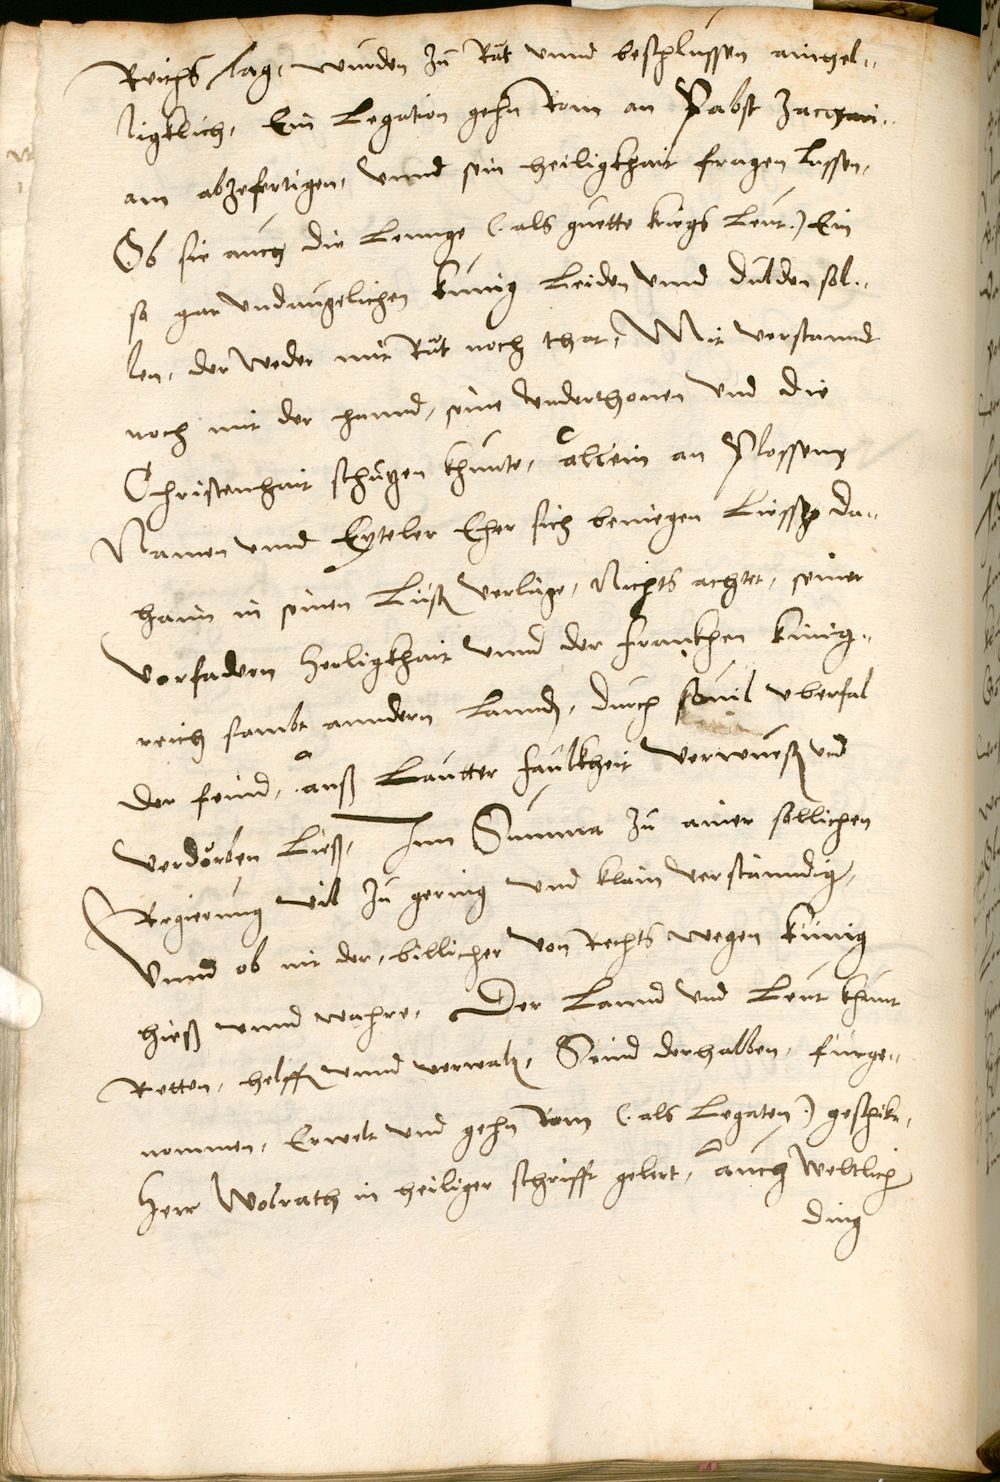 Reichs lag, wurden zu Rät vnnd beschlussen ainhel-
ligklich, Ein Legation gehn Rom an Pabst Zachari-
am abzefertigen, vnnd sein heiligkhait fragen lassen,
Ob sie auch die Lennge (: als guette kriegs Leut :) Ein
so gar vndaugelichen künig Leiden vnnd dulden sol-
len, der weder mit Rät noch that, Mit verstanndt
noch mit der hannd, seine vnderthonen vnd die
Christenhait schützen khunte, allein an Plossem
Namen vnnd Eyteler Eher sich beniegen Liesse, da-
haim in seinem Lust verläge, Nichts achtet, seiner
Vorfadern herligkhait vnnd der frankhen künig-
reich sambt anndern Lannd, durch souil vberfal
der feind, auß Lautter faulkheit verwuest vnd
verdörben Ließ, Inn Summa zu ainer sollichen
Regierung vil zu gering vnd klain verstänndig,
Vnnd ob nit der, billicher von Rechts wegen künig
hieß vnnd wahre, Der Lannd vnd Leut khunt
Retten, helffen vnnd verwalten, Seind derhalben, fürge-
nommen, Erwelt vnd gehn Rom (: als Legaten :) geschikt,
Herr Wolrath in heiliger schrifft gelert, auch weltlich
ding